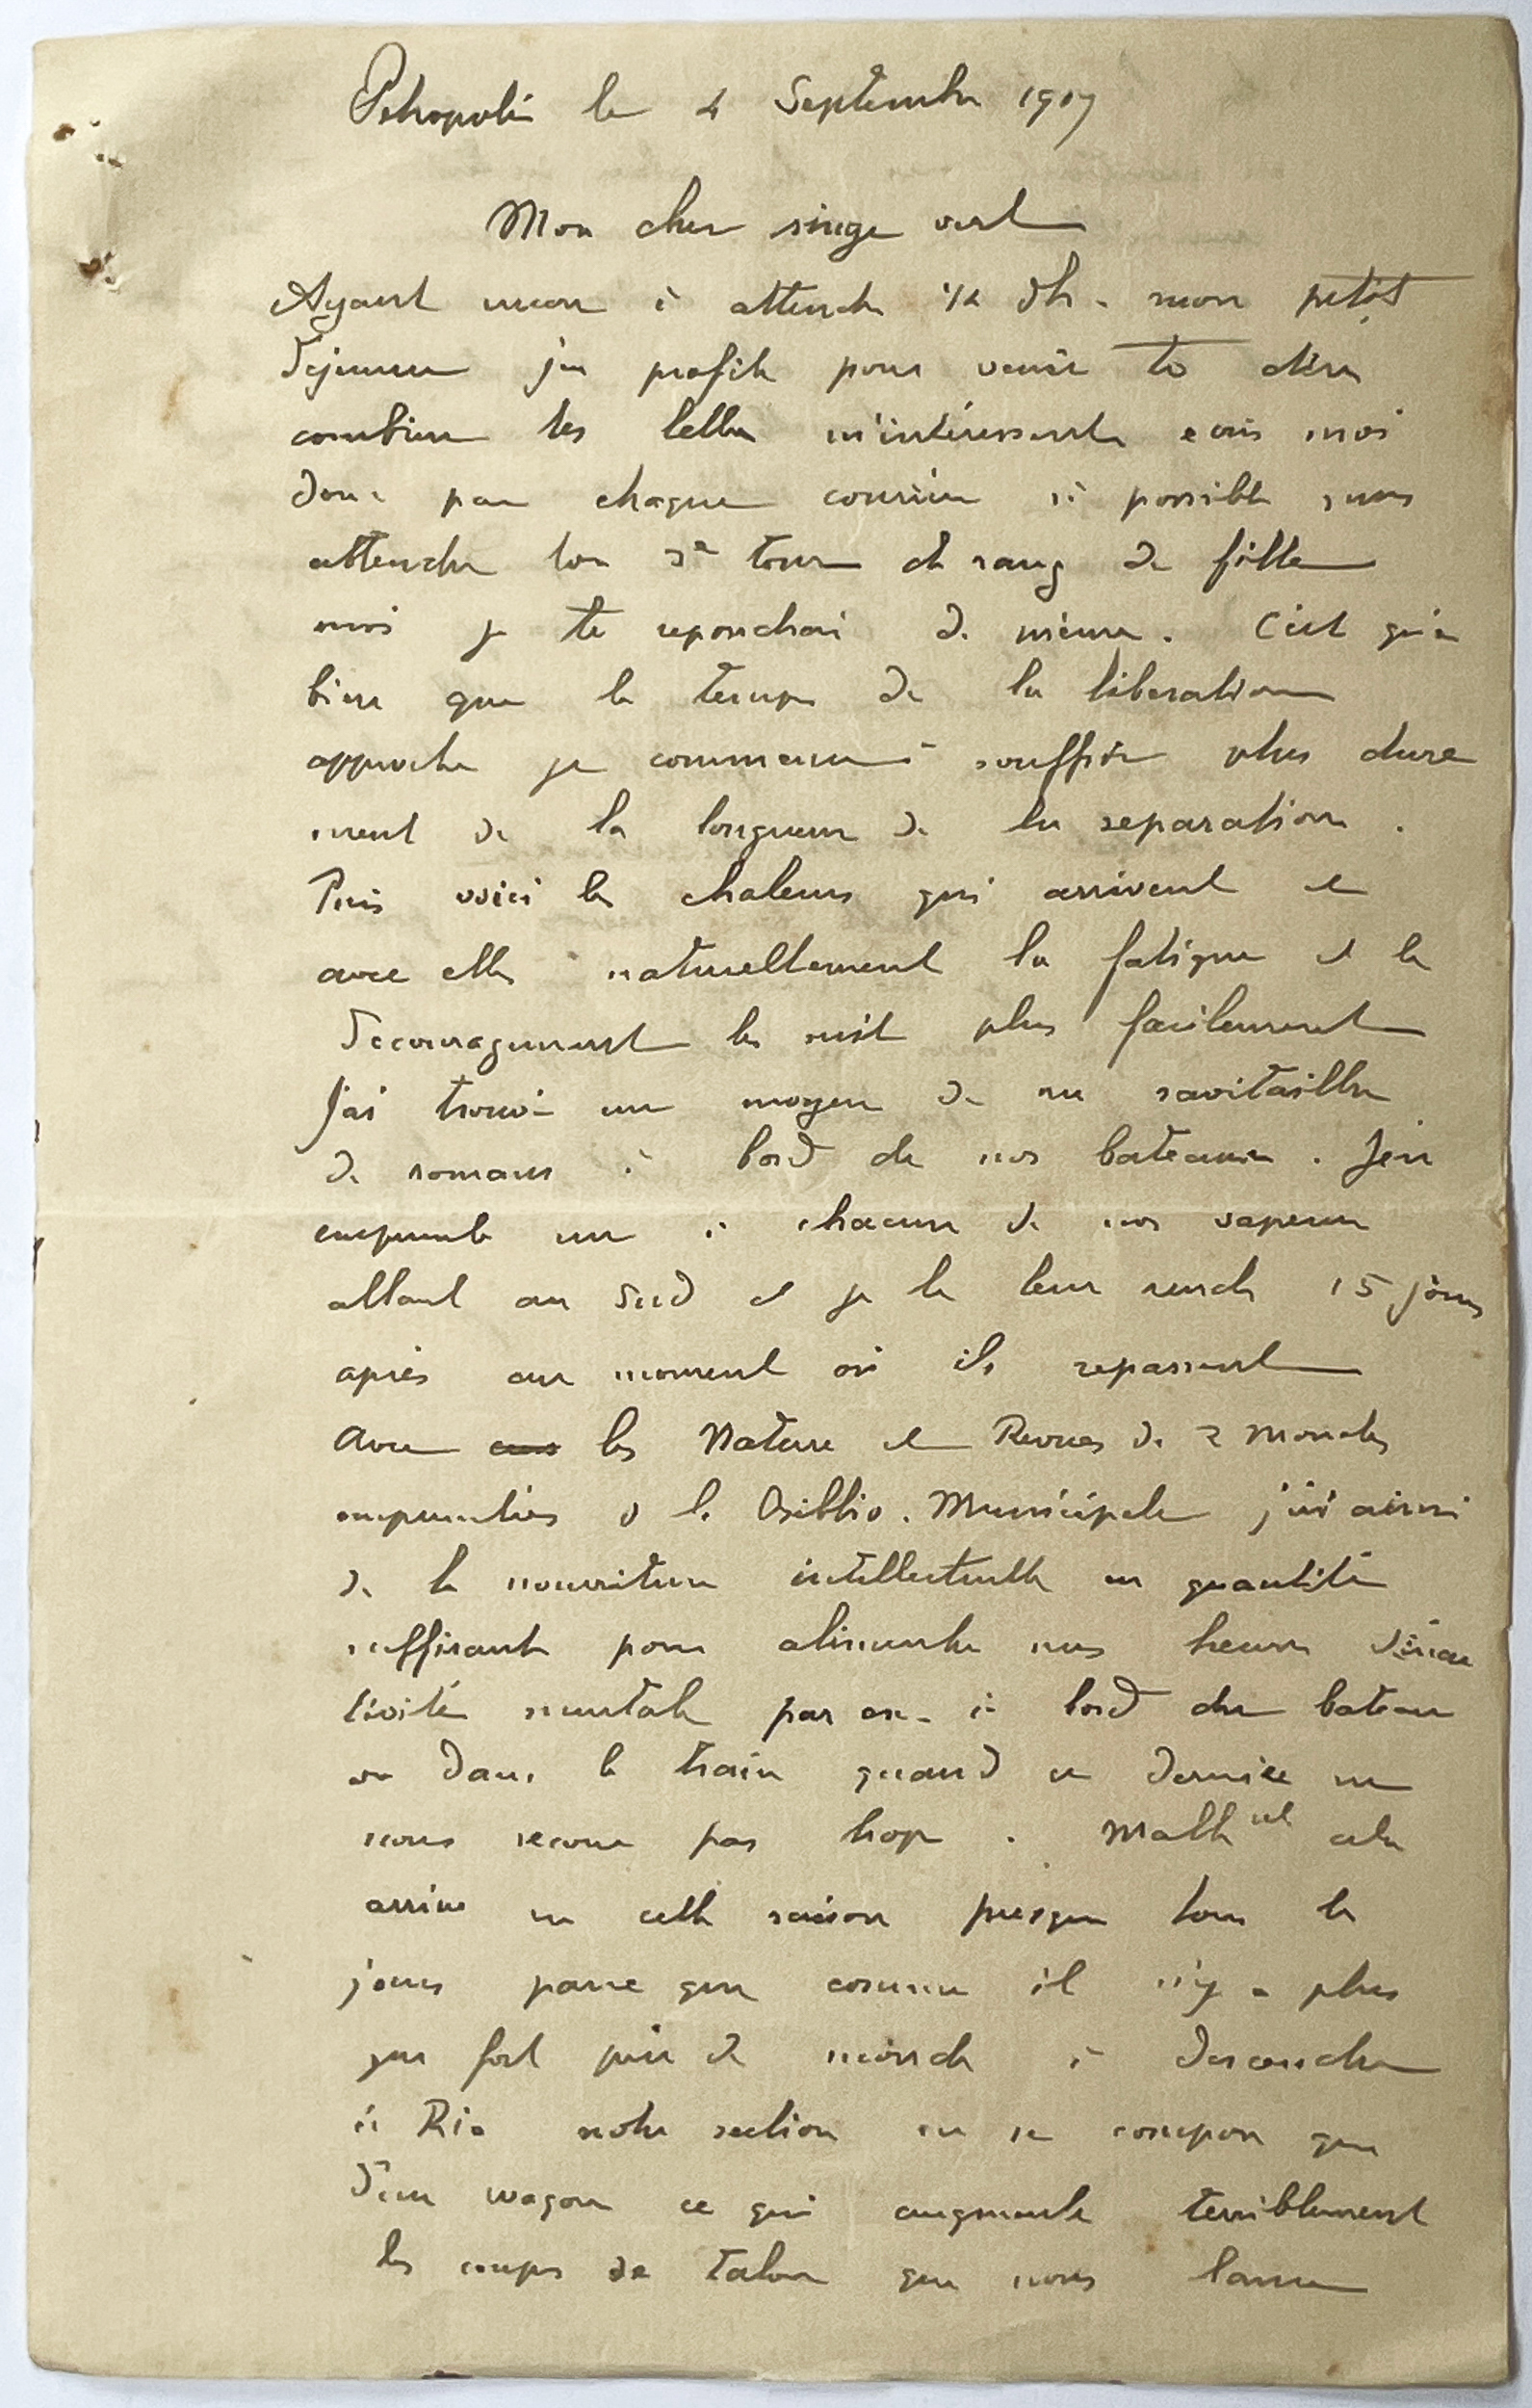 Petropolis le 4 Septembre 1917
Mon cher singe vert
Ayant encore à attendre 1/2 h. mon petit
dejeuner j'en profite pour venir te dire
combien tes lettres m'intéressent ecris moi
donc par chaque courrier si possible sans
attendre ton tour de rang de fille
moi je te repondrai de même. C'est qu'a
bien que le temps de la liberation
approche je commence à souffrir plus dure
ment de la longueur de la separation.
Puis voici les chaleurs qui arrivent et
avec elles naturellement la fatigue et le
decouragement les suit plus facilement
J'ai trouvé un moyen de me ravitailler
de romans à bord de nos bateaux. J'en
emprunte un à chacun de nos vapeurs
allant au Sud et je le leur rends 15 jours
après au moment où ils repassent
Avec les Nature et Revues des 2 Mondes
empruntées à la Biblio. Municipale j'ai ainsi
de la nourriture intellectuelle en quantité
suffisante pour alimenter mes heures d'inac
tivité mentale par ex. à bord du bateau
ou dans le train quand ce dernier ne
nous secoue pas trop. Malh eut cela
arrive en cette saison presque tous les
jours parce que comme il n'y a plus
que fort peu de monde à descendre
à Rio notre section ne se compose que
d'un wagon ce qui augmente terriblement
les coups de talon que nous lance